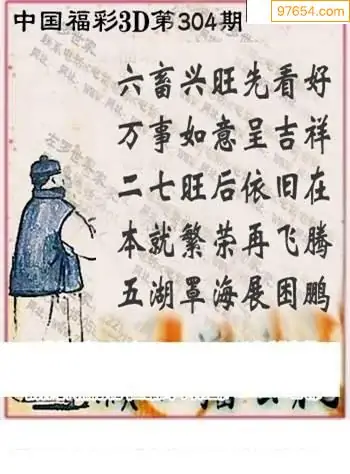 97654.com
中国福彩3D第304期
六畜兴旺先看好
万事如意呈吉祥
二七旺后依旧在
本就繁荣再飞腾
五湖罩海展困鹏